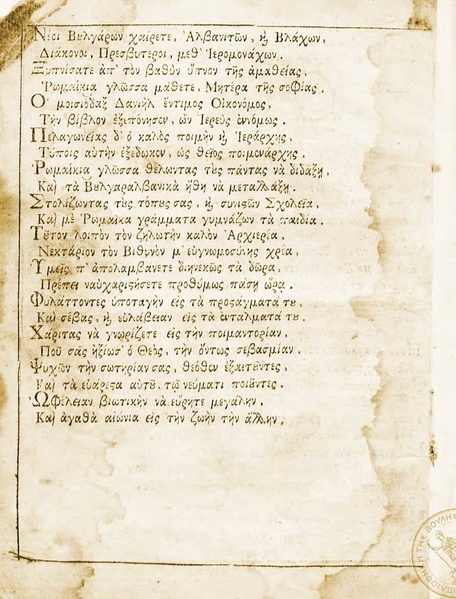 Νέοι Βȣλγάρων χαίρετε, Ἀλβανιτῶν, ϗ Βλάχων,
Διάκονοι, Πρεσβυτεροι, μεθ' Ἱερομονάχων.
Ξυπνίσατε ἀπ' τὸν βαθὺν ὕπνον τῆς ἀμαθείας,
Ῥωμαίκια γλῶσσα μάθετε, Μητέρα τῆς σοφίας.
Ὁ μοισιόδαξ Δανιὴλ ἔντιμος Οἰκονόμος,
Τὴν βίβλον ἐξεπόνησεν, ὢν Ἱερεὺς ἐνόμως.
Πελαγωνείας δ' ὁ καλὸς ποιμὴν ϗ Ἱεράρχης,
Τύποις αὐτὴν ἐξέδωκεν, ὡς θεῖος ποιμενάρχης.
Ῥωμαίκια γλῶσσα θέλωντας τȣς πάντας νὰ διδάξῃ,
Καὶ τὰ Βȣλγαραλβανικὰ ἤθη νὰ μεταλλάξῃ.
Στολίζωντας τȣς τόπȣς σας, ϗ συνιςῶν Σχολεῖα,
Καὶ μὲ Ῥωμαίκα γράμματα γυμνάζων τὰ παιδία.
Τȣτον λοιπὸν τὸν ζηλωτὴν καλὸν Ἀρχιερέα,
Νεκτάριον τὸν Βιθυνὸν μ' εὐγνωμοσύνης χρέα,
Ὑμεῖς π' ἀπολαμβάνετε διηνεκῶς τὰ δῶρα,
Πρέπει ναὐχαριςήσετε προθύμως πάσῃ ὥρᾳ.
Φυλάττοντες ὑποταγὴν εἰς τὰ προςάγματά τȣ,
Καὶ σέβας, ϗ εὐλάβειαν εἰς τὰ ἐντάλματά τȣ.
Χάριτας νὰ γνωρίζετε εἰς τὴν ποιμαντορίαν,
Ποῦ σᾶς ἠξίωσ' ὁ Θεὸς, τὴν ὄντως σεβασμίαν.
Ψυχῶν τὴν σωτηρίαν σας, θεόθεν ἐξαιτȣντες,
Καὶ τὰ εὐάρεςα αὐτȣ, τῷ νεύματι ποιȣντες.
Ὠφέλειαν βιωτικὴν νὰ εὕρητε μεγάλην,
Καὶ ἀγαθὰ αἰώνια εἰς τὴν ζωὴν τὴν ἄλλην,